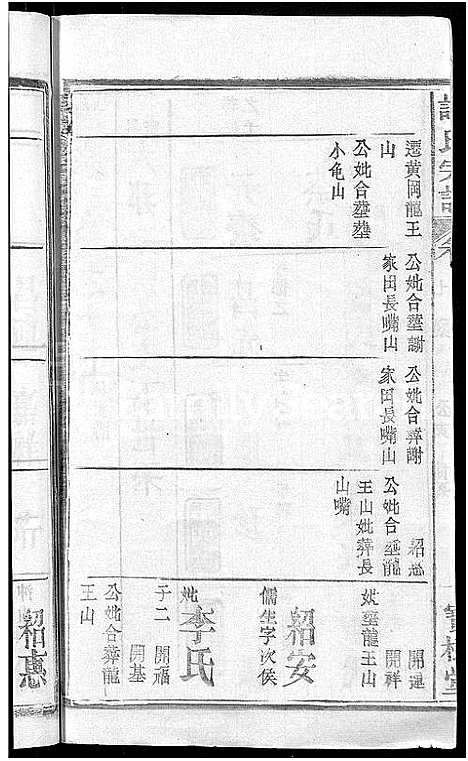 遷黃岡龍王
山
公妣合塋塟
小龟山
公妣合塋謝
家田長嘴山
公妣合葬謝
家田長嘴山
紹㤠
公妣合塋龍
王山妣葬長
山嘴
開運
開祥
妣塋龍王山
紹安
儒生字次侯
妣李氏
子二 開福
開基
公妣合葬龍
王山
紹惠